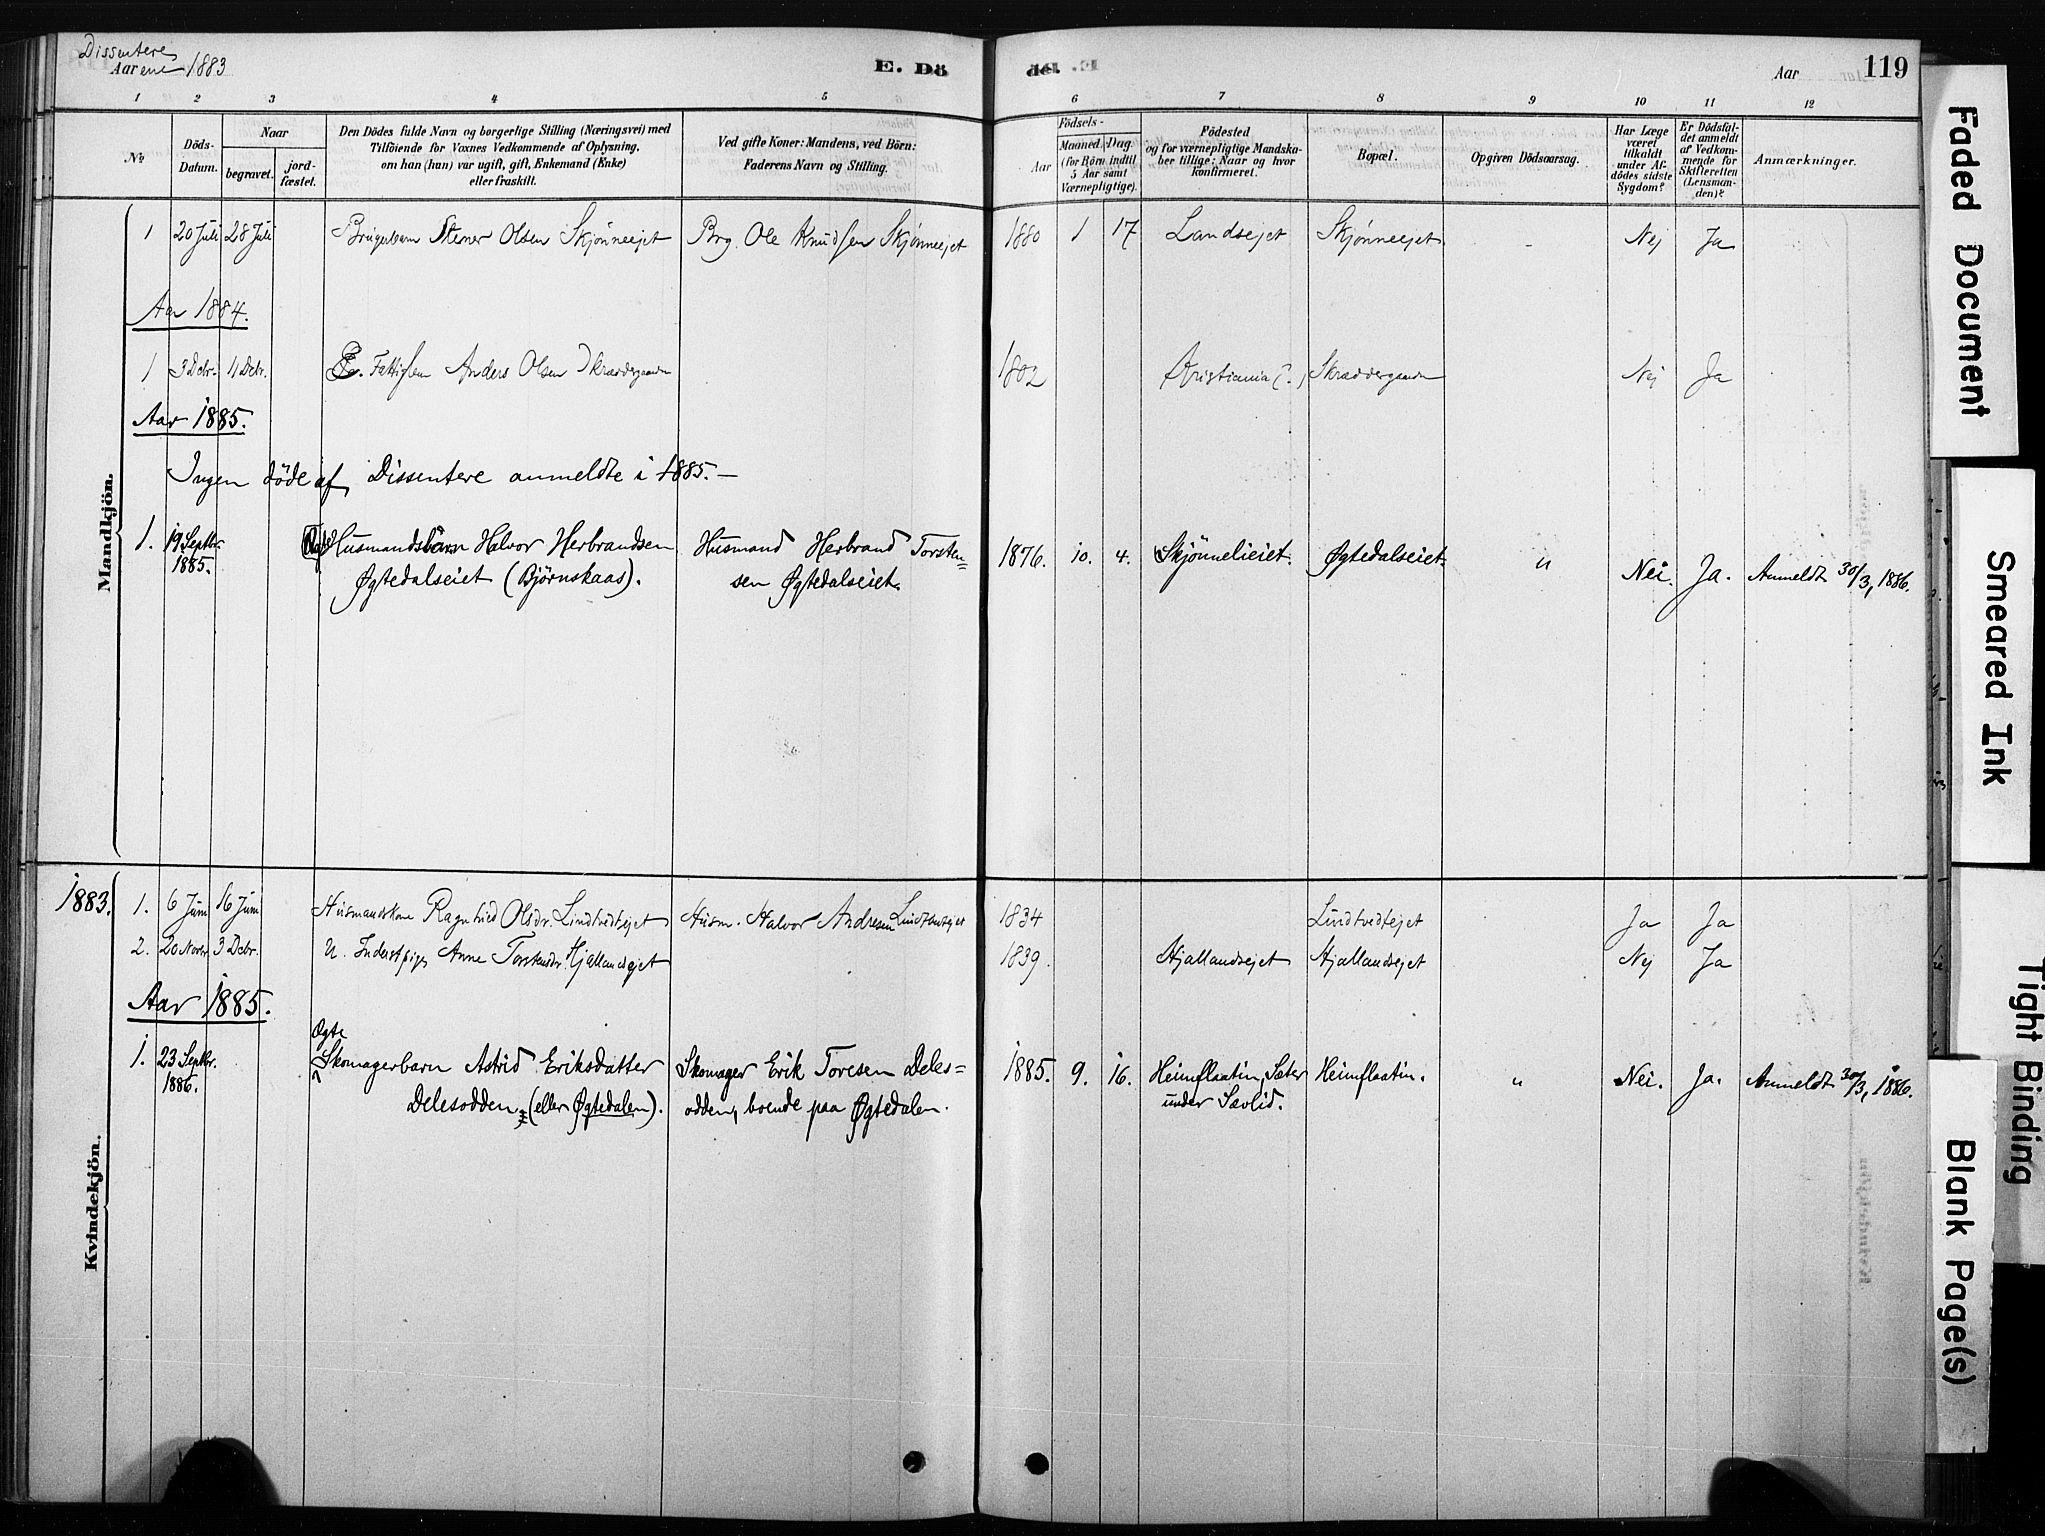 Dissentere
Aarene 1883
E. Dö
de. E.
Aar
119
1 2 3 4 5 6 7 8 9 10 11 12
No
Döds-Datum.
Naar
begravet.
jord-fæstet.
Den Dödes fulde Navn og borgerlige Stilling (Næringsvei) med
Tilföiende for Voxnes Vedkommende af Oplysning,
om han (hun) var ugift, gift, Enkemand (Enke)
eller fraskilt.
Ved gifte Koner: Mandens, ved Börn:
Faderens Navn og Stilling.
Födsels-
Aar
Maaned. Dag.
(for Börn indtil
5 Aar samt
Værnepligtige).
Födested
og for værnepligtige Mandska-
ber tillige: Naar og hvor
konfirmeret.
Bopæl.
Opgiven Dödsaarsag.
Har Læge
været
tilkaldt
under Af-
dödes sidste
Sygdom?
Er Dödsfal-
det anmeldt
af Vedkom-
mende for
Skifteretten
(Lensman-
den)?
Anmærkninger.
Mandkjön.
1 20 Juli 28 Juli Brugerbarn Stener Olsen Skjønneejet Brg. Ole Knudsen Skjønneejet 1880 1 17 Landsejet Skjønneejet - Nej Ja
Aar 1884.
1 3 Decbr. 11 Decbr. Fattiglem Anders Olsen Skræddergaarden 1802 Kristiania (?) Skræddergaarden Nej Ja
Aar 1885.
Ingen döde af Dissentere anmeldte i 1885. —
1. 19 Septbr. Husmandsbarn Halvor Herbrandsen Husmand Herbrand Torsten= 1876. 10. 4. Skjönnelieiet. Øgtedalseiet. " Nei. Ja. Anmeldt 30/3, 1886.
1885. Øgtedalseiet (Björnskaas). sen Øgtedalseiet.
Kvindekjön.
1883. 1. 6 Juni 16 Juni Husmandskone Ragnhild Olsdr. Lindtvedtejet Husm. Halvor Andresen Lindtvedtejet 1834 Lindtvedtejet Ja Ja
2. 20 Novbr 3 Decbr. U. Inderstpige Anne Torstensdr. Hjallandsejet 1839. Hjallandsejet Hjallandsejet Nej Ja
Aar 1885.
Ogte
1. 23 Septbr. Skomagerbarn Astrid Eriksdatter Skomager Erik Toresen Deles= 1885. 9. 16. Heimflaatin, Sæter Heimflaatin. " Nei. Ja. Anmeldt 30/3, 1886.
1886. Delesodden, (eller Øgtedalen). odden, boende paa Øgtedalen. under Sævlid.
Faded Document
Smeared Ink
Tight Binding
Blank Page(s)